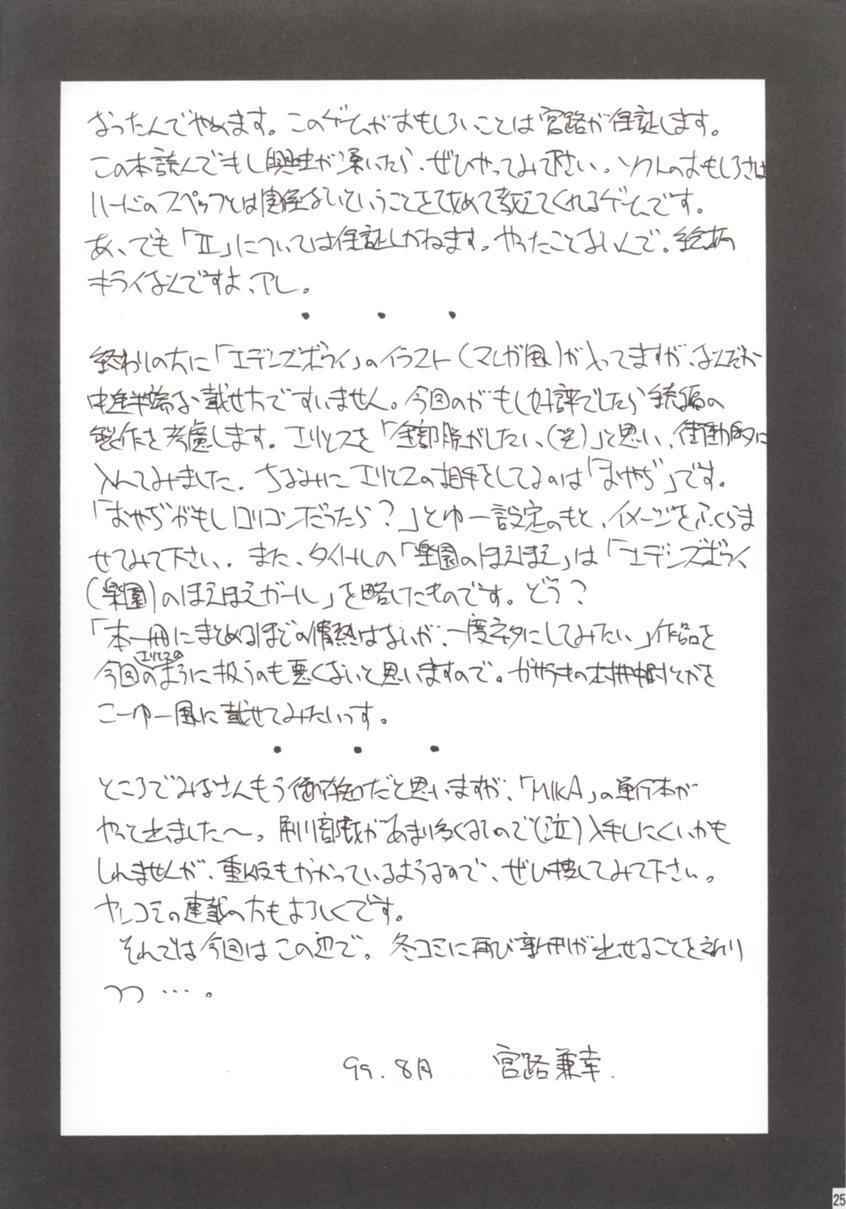 なったんでやめます。このゲームがおもしろいことは宮路が保証します。
この本読んでもし興味が湧いたら、ぜひやってみて下さい。ソフトのおもしろさは
ハードのスペックとは関係ないということを改めて教えてくれるゲームです。
あ、でも「Ⅱ」については保証しかねます。やったことないんで。絵柄
キライなんですよ、アレ。
・ ・ ・
終わりの方に「エデンズボゥイ」のイラスト（マンガ風）が入ってますが、なんだか
中途半端な載せ方ですいません。今回のがもし好評でしたら続編の
製作を考慮します。エリシスを「全部脱がしたい（笑）」と思い、衝動的に
入れてみました。ちなみにエリシスの相手をしてるのは「おやぢ」です。
「おやぢがもしロリコンだったら？」とゆー設定のもと、イメージをふくらま
せてみて下さい。また、タイトルの「楽園のほえほえ」は「エデンズボゥイ
（楽園）のほえほえガール」を略したものです。どう？
「本一冊にまとめるほどの情熱はないが、一度ネタにしてみたい」作品を
今回のエリシスのように扱うのも悪くないと思いますので。
こーゆー風に載せてみたいっす。
・ ・ ・
ところでみなさんもう御存知だと思いますが、「MIKA」の単行本が
やっと出ました〜。刷り部数があまり多くないので（泣）入手しにくいかも
しれませんが、重版もかかっているようなので、ぜひ捜してみて下さい。
ヤンコミの連載の方もよろしくです。
それでは今回はこの辺で。冬コミに再び新刊が出せることを祈り
つつ…。
99.8月 宮路兼幸.
25